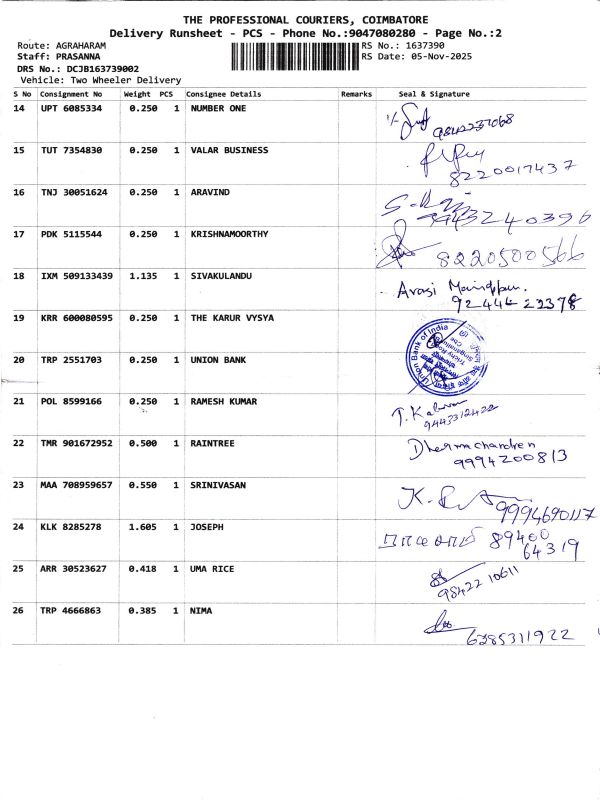 THE PROFESSIONAL COURIERS, COIMBATORE
Delivery Runsheet - PCS - Phone No.:9047080280 - Page No.:2
Route: AGRAHARAM
RS No.: 1637390
Staff: PRASANNA
RS Date: 05-Nov-2025
DRS No.: DCJB163739002
Vehicle: Two Wheeler Delivery
S No Consignment No Weight PCS Consignee Details Remarks Seal & Signature
14 UPT 6085334 0.250 1 NUMBER ONE
9842237068
15 TUT 7354830 0.250 1 VALAR BUSINESS
8220017437
16 TNJ 30051624 0.250 1 ARAVIND
9943240396
17 PDK 5115544 0.250 1 KRISHNAMOORTHY
8220500566
18 IXM 509133439 1.135 1 SIVAKULANDU
Arasi
92444 22378
19 KRR 600080595 0.250 1 THE KARUR VYSYA
Union Bank of India
20 TRP 2551703 0.250 1 UNION BANK
21 POL 8599166 0.250 1 RAMESH KUMAR
9443312422
22 TMR 901672952 0.500 1 RAINTREE
Dharmachandren
9994200813
23 MAA 708959657 0.550 1 SRINIVASAN
9994690117
24 KLK 8285278 1.605 1 JOSEPH
89400
64319
25 ARR 30523627 0.418 1 UMA RICE
98422 10611
26 TRP 4666863 0.385 1 NIMA
6385311922